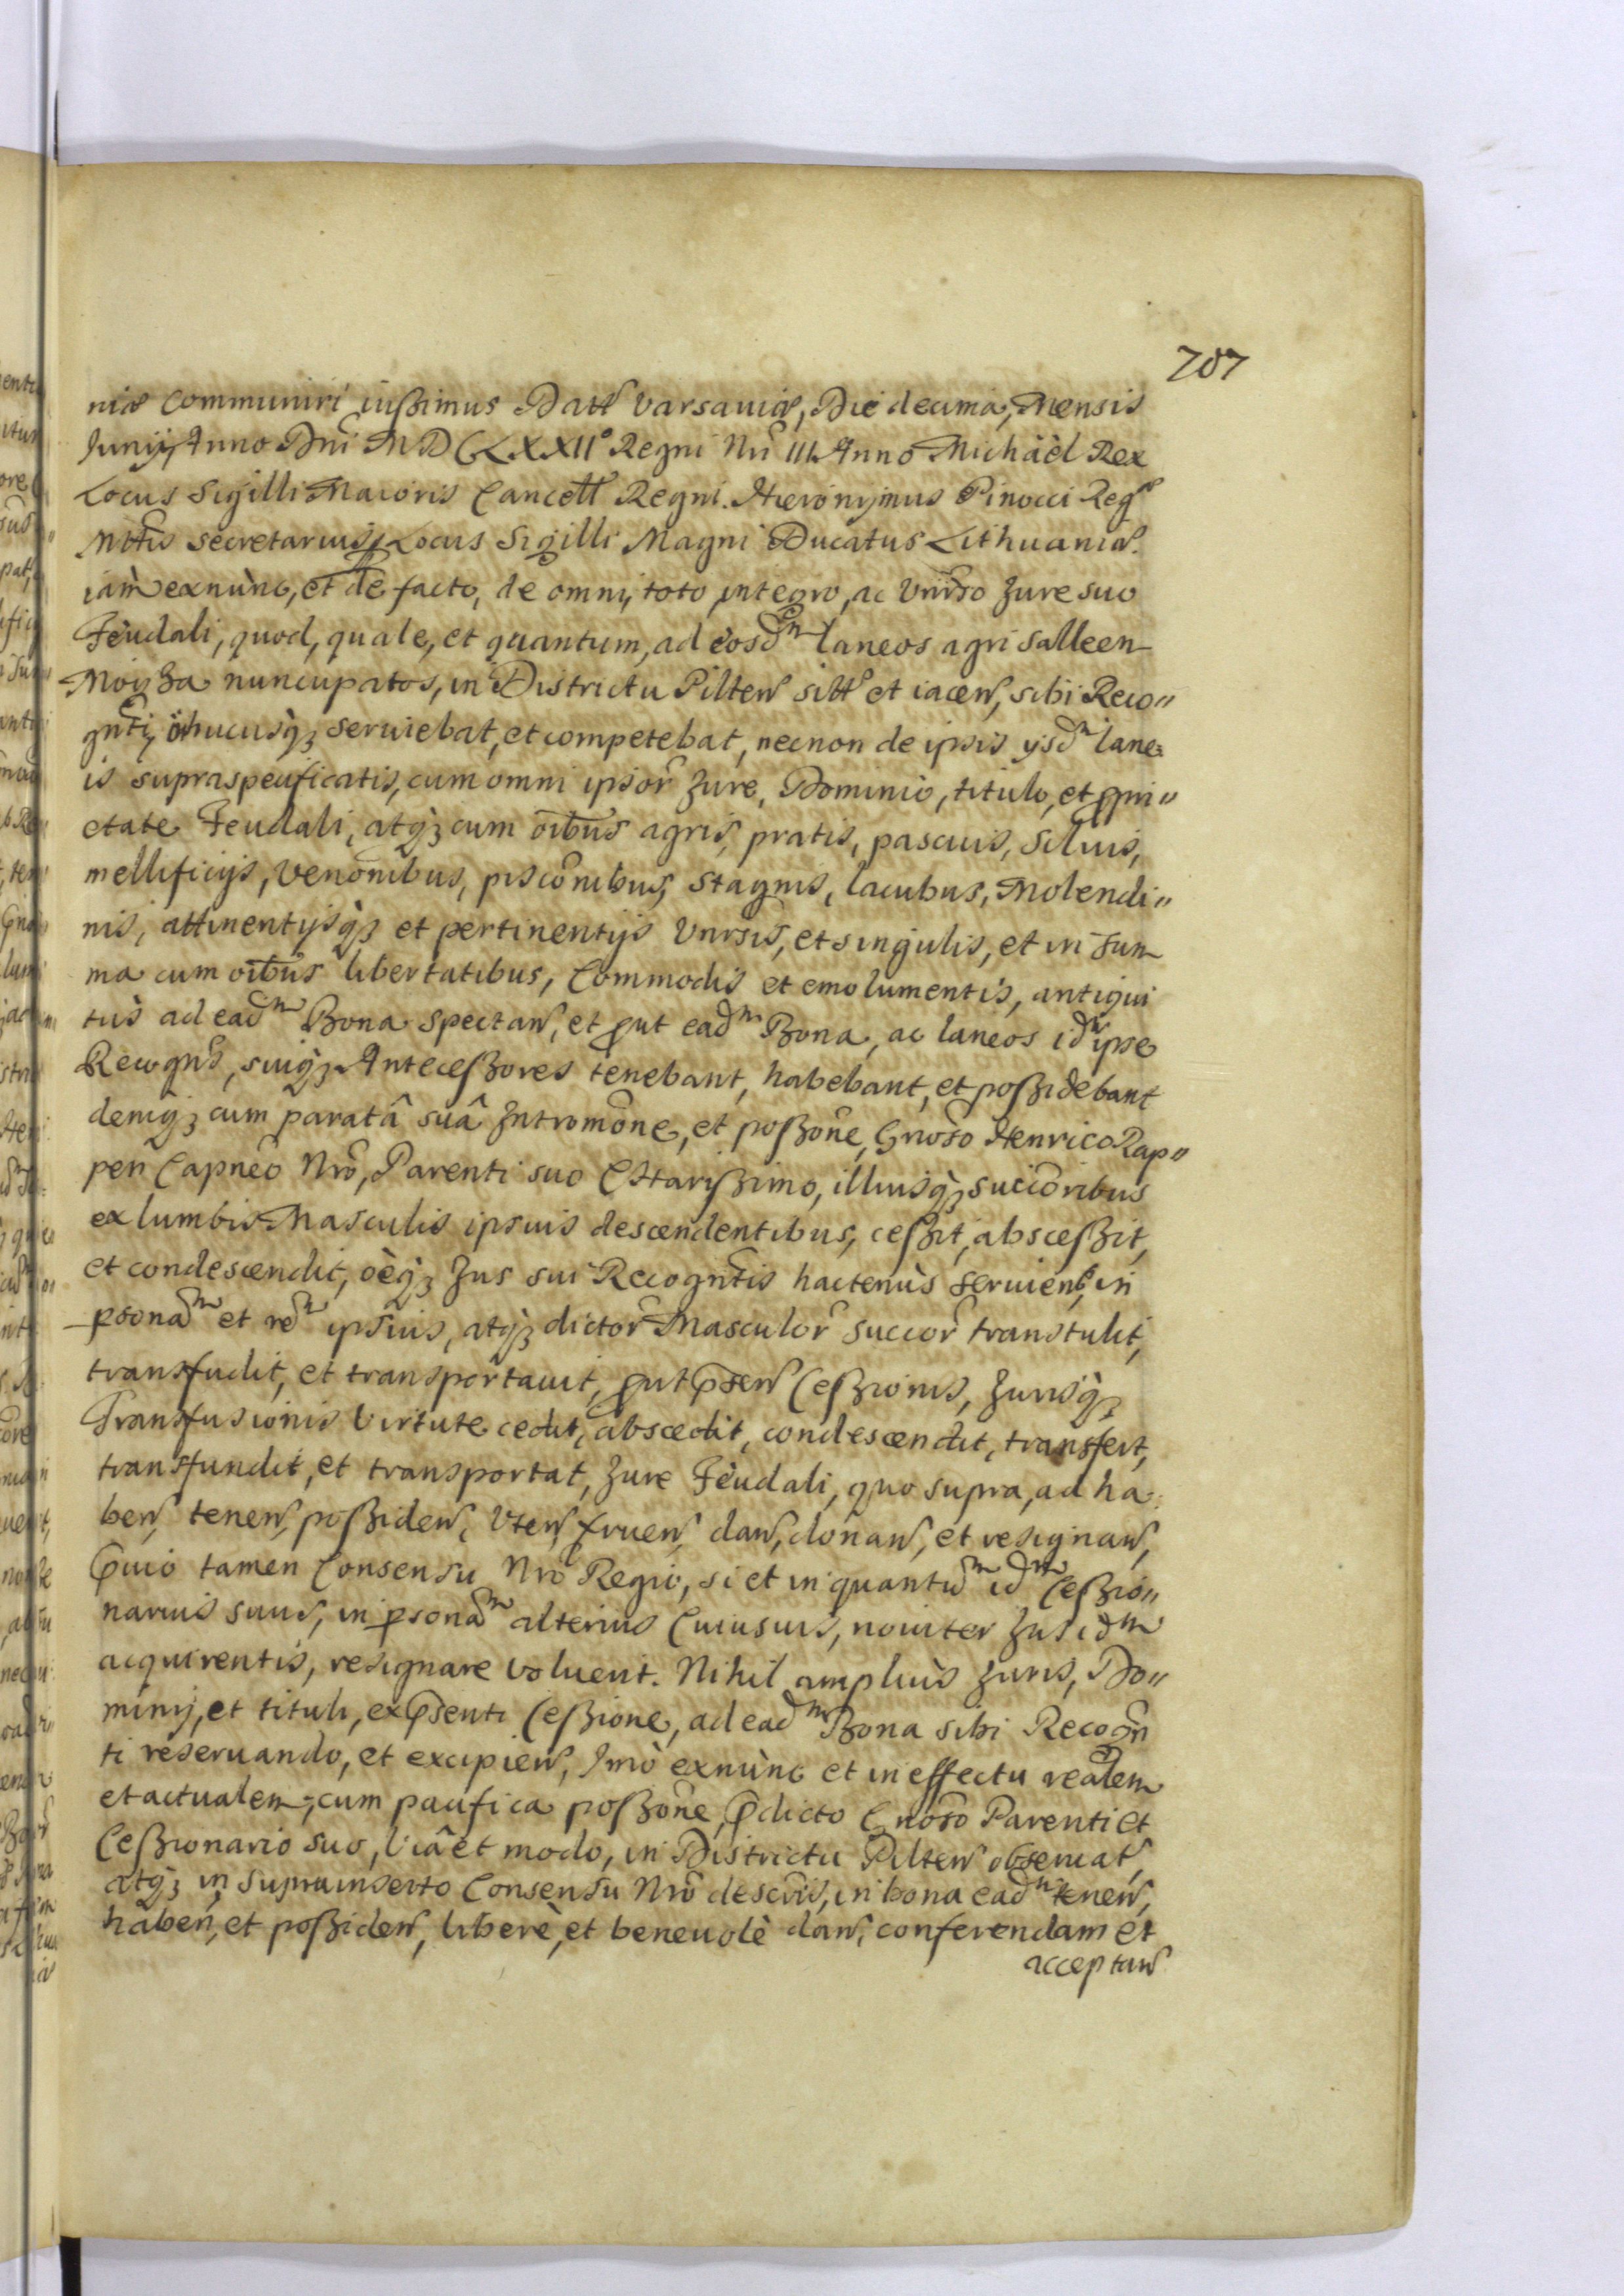 707
niæ communiri iussimus Datt Varsauiæ, Die decima, Mensis
Junij, Anno Dni MDCLXXII° Regni Nri III. Anno Michaël Rex
Locus Sigilli Maioris Cancell Regni. Hieronymus Pinocci Reg
Mttis Secretarius, Locus Sigilli Magni Ducatus Lithuaniæ.
iam exnunc, et de facto, de omni, toto, integro, ac Vniuro Jure suo
Feudali, quod, quale, et quantum, ad eosdm laneos agri Salleen
Moyza nuncupatos, in Districtu Pilten sitt et iacen, sibi Reco„
gnti, adhucusq; seruiebat, et competebat, necnon de ipsis ijsdm lane=
is supraspecificatis, cum omni ipsor Jure, Dominio, titulo, et ppri„
etate Feudali, atq; cum oibus agris, pratis, pascuis, Siluis,
mellificijs, Venonibus, pisconibus, Stagnis, lacubus, Molendi„
nis, attinentijsq; et pertinentijs Vnrsis, et singulis, et in Sum
ma cum oibus libertatibus, Commodis et emolumentis, antiqui
tus ad eadm Bona spectan, et put eadm Bona, ac laneos idm ipse
Recogns, suiq; Antecessores tenebant, habebant, et possidebant
deniq; cum paratâ suâ Intromone, et possone, Gnoso Henrico Rap„
pen Capneo Nro, Parenti suo Charissimo, illiusq; succoribus
ex lumbis Masculis ipsius descendentibus, cessit, abscessit,
et condescendit, oeq; Jus sui Recogntis hactenùs seruiens, in
psonam et rem ipsius, atq; dictor Masculor succor transtulit,
transfudit, et transportauit, put psen Cessionis, Jurisq;
Transfusionis Virtute cedit, abscedit, condescendit, transfert,
transfundit, et transportat, Jure Feudali, quo supra, ad ha
ben, tenen, possiden, Vten, fruen, dan, donan, et resignan,
Pruio tamen Consensu Nro Regio, si et in quantum idm Cessio„
narius suus, in psonam alterius Cuiusuis, nouiter Jus idm
acquirentis, resignare voluerit. Nihil ampliùs Juris, Do„
minij, et tituli, ex psenti Cessione, ad eadm Bona sibi Recogn
ti reseruando, et excipien, Imò exnùnc et in effectu realem
et actualem, cum pacifica possone, pdicto Gnoso Parenti et
Cessionario suo, Viâ et modo, in Districtu Pilten obseruat,
atq; in suprainserto Consensu Nro descris, in bona eadm tenen,
haben, et possiden, liberè, et beneuolè dan, conferendam et
acceptan